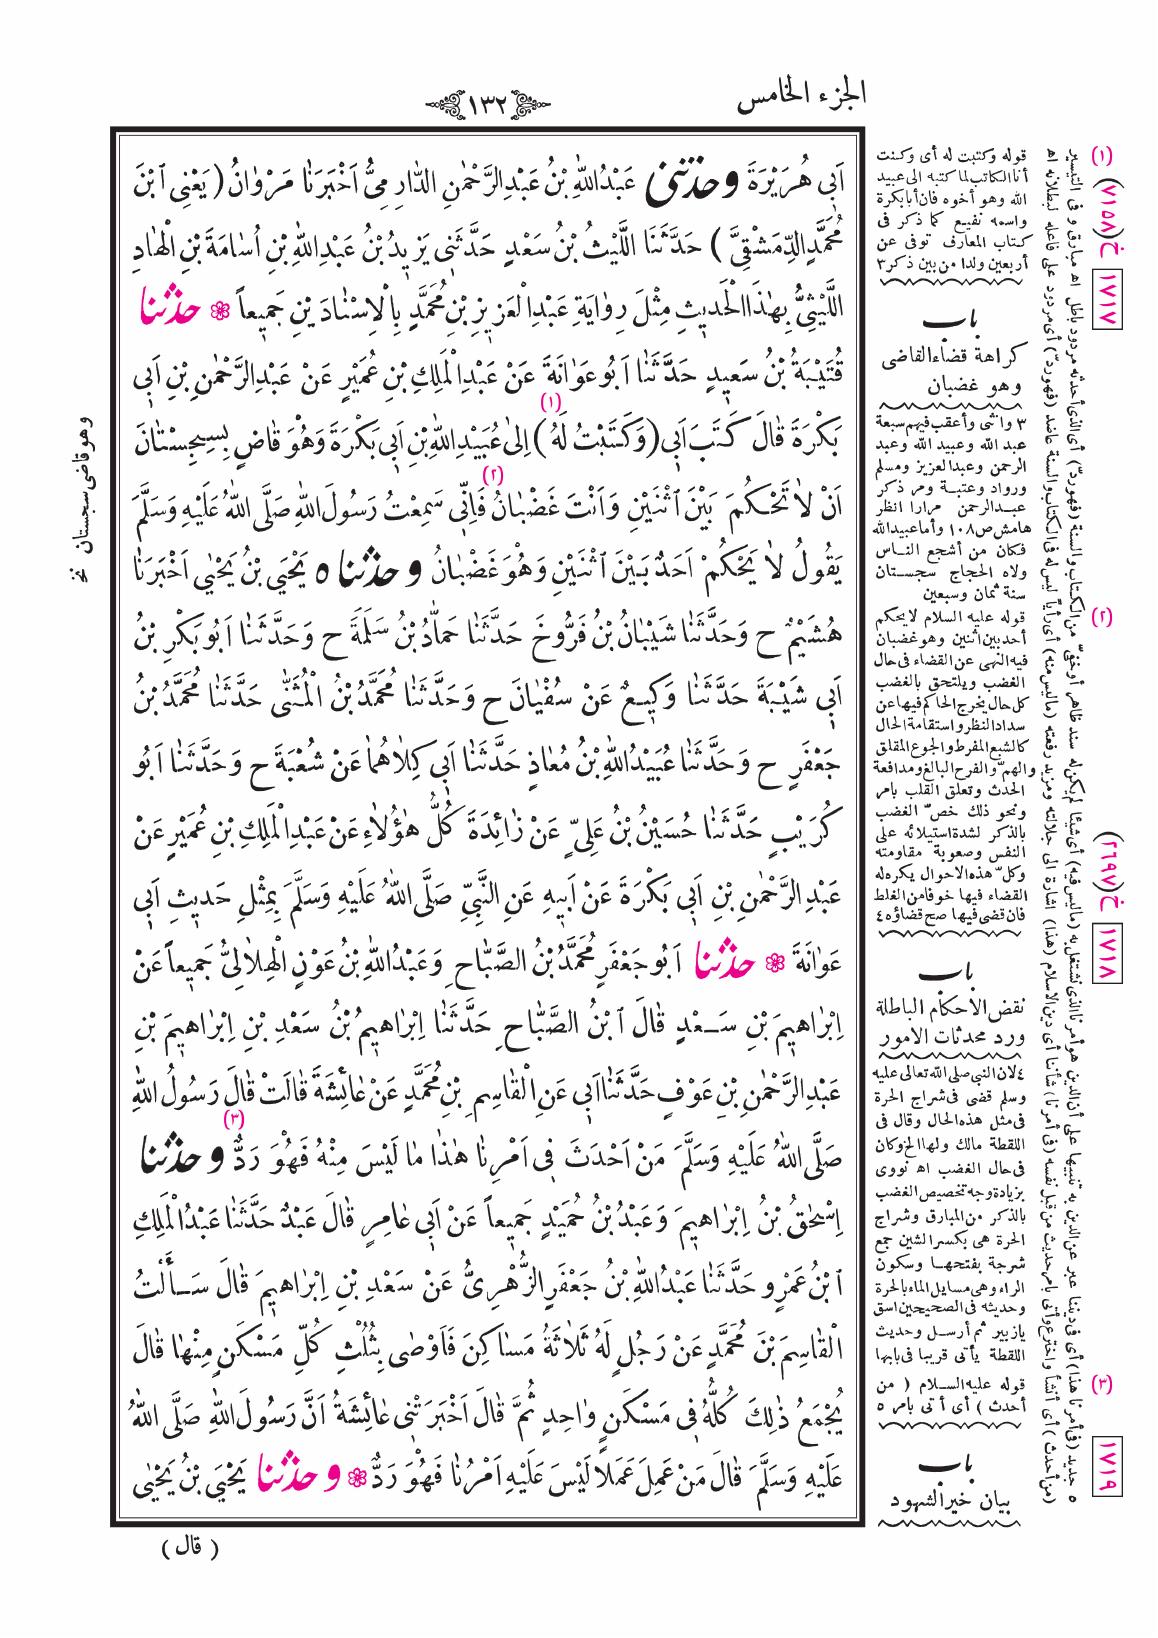 الجزء الخامس
١٣٢
اَبِي هُرَيْرَةَ وحدثني عَبْدُاللّٰهِ بْنُ عَبْدِالرَّحْمٰنِ الدَّارِمِيُّ اَخْبَرَنَا مَرْوَانُ (يَعْنِى ابْنَ
مُحَمَّدٍ الدِّمَشْقِيَّ) حَدَّثَنَا اللَّيْثُ بْنُ سَعْدٍ حَدَّثَنِي يَزِيدُ بْنُ عَبْدِاللّٰهِ بْنِ اُسَامَةَ بْنِ الْهَادِ
اللَّيْثِيُّ بِهٰذَا الْحَدِيثِ مِثْلَ رِوَايَةِ عَبْدِالْعَزِيزِ بْنِ مُحَمَّدٍ بِالْاِسْنَادَيْنِ جَمِيعاً ❁ حدثنا
قُتَيْبَةُ بْنُ سَعِيدٍ حَدَّثَنَا اَبُو عَوَانَةَ عَنْ عَبْدِالْمَلِكِ بْنِ عُمَيْرٍ عَنْ عَبْدِالرَّحْمٰنِ بْنِ اَبِي
بَكْرَةَ قَالَ كَتَبَ اَبِي (وَكَتَبْتُ لَهُ) (١) اِلىٰ عُبَيْدِاللّٰهِ بْنِ اَبِي بَكْرَةَ وَهُوَ قَاضٍ بِسِجِسْتَانَ
اَنْ لَا تَحْكُمَ بَيْنَ اثْنَيْنِ وَاَنْتَ غَضْبَانُ (٢) فَاِنِّي سَمِعْتُ رَسُولَ اللّٰهِ صَلَّى اللّٰهُ عَلَيْهِ وَسَلَّمَ
يَقُولُ لَا يَحْكُمْ اَحَدٌ بَيْنَ اثْنَيْنِ وَهُوَ غَضْبَانُ وحدثنا ٥ يَحْيَى بْنُ يَحْيٰى اَخْبَرَنَا
هُشَيْمٌ ح وَحَدَّثَنَا شَيْبَانُ بْنُ فَرُّوخَ حَدَّثَنَا حَمَّادُ بْنُ سَلَمَةَ ح وَحَدَّثَنَا اَبُو بَكْرِ بْنُ
اَبِي شَيْبَةَ حَدَّثَنَا وَكِيعٌ عَنْ سُفْيَانَ ح وَحَدَّثَنَا مُحَمَّدُ بْنُ الْمُثَنّٰى حَدَّثَنَا مُحَمَّدُ بْنُ
جَعْفَرٍ ح وَحَدَّثَنَا عُبَيْدُاللّٰهِ بْنُ مُعَاذٍ حَدَّثَنَا اَبِي كِلَاهُمَا عَنْ شُعْبَةَ ح وَحَدَّثَنَا اَبُو
كُرَيْبٍ حَدَّثَنَا حُسَيْنُ بْنُ عَلِيٍّ عَنْ زَائِدَةَ كُلُّ هٰؤُلَاءِ عَنْ عَبْدِالْمَلِكِ بْنِ عُمَيْرٍ عَنْ
عَبْدِالرَّحْمٰنِ بْنِ اَبِي بَكْرَةَ عَنْ اَبِيهِ عَنِ النَّبِيِّ صَلَّى اللّٰهُ عَلَيْهِ وَسَلَّمَ بِمِثْلِ حَدِيثِ اَبِي
عَوَانَةَ ❁ حدثنا اَبُو جَعْفَرٍ مُحَمَّدُ بْنُ الصَّبَّاحِ وَعَبْدُاللّٰهِ بْنُ عَوْنٍ الْهِلَالِيُّ جَمِيعاً عَنْ
اِبْرَاهِيمَ بْنِ سَعْدٍ قَالَ ابْنُ الصَّبَّاحِ حَدَّثَنَا اِبْرَاهِيمُ بْنُ سَعْدِ بْنِ اِبْرَاهِيمَ بْنِ
عَبْدِالرَّحْمٰنِ بْنِ عَوْفٍ حَدَّثَنَا اَبِي عَنِ الْقَاسِمِ بْنِ مُحَمَّدٍ عَنْ عَائِشَةَ قَالَتْ قَالَ رَسُولُ اللّٰهِ
صَلَّى اللّٰهُ عَلَيْهِ وَسَلَّمَ مَنْ اَحْدَثَ فِي اَمْرِنَا هٰذَا مَا لَيْسَ مِنْهُ فَهُوَ رَدٌّ (٣) وحدثنا
اِسْحٰقُ بْنُ اِبْرَاهِيمَ وَعَبْدُ بْنُ حُمَيْدٍ جَمِيعاً عَنْ اَبِي عَامِرٍ قَالَ عَبْدٌ حَدَّثَنَا عَبْدُالْمَلِكِ
ابْنُ عَمْرٍو حَدَّثَنَا عَبْدُاللّٰهِ بْنُ جَعْفَرٍ الزُّهْرِيُّ عَنْ سَعْدِ بْنِ اِبْرَاهِيمَ قَالَ سَأَلْتُ
الْقَاسِمَ بْنَ مُحَمَّدٍ عَنْ رَجُلٍ لَهُ ثَلَاثَةُ مَسَاكِنَ فَاَوْصٰى بِثُلُثِ كُلِّ مَسْكَنٍ مِنْهَا قَالَ
يُجْمَعُ ذٰلِكَ كُلُّهُ فِي مَسْكَنٍ وَاحِدٍ ثُمَّ قَالَ اَخْبَرَتْنِي عَائِشَةُ اَنَّ رَسُولَ اللّٰهِ صَلَّى اللّٰهُ
عَلَيْهِ وَسَلَّمَ قَالَ مَنْ عَمِلَ عَمَلاً لَيْسَ عَلَيْهِ اَمْرُنَا فَهُوَ رَدٌّ ❁ وحدثنا يَحْيَى بْنُ يَحْيٰى
( قال )
وهو قاضى سجستان نخ
(١)
قوله وكتبت له أى وكنت
أنا الكاتب لما كتبه الى عبيد
الله وهو أخوه فان أبابكرة
واسمه نفيع كما ذكر فى
كتاب المعارف توفى عن
أربعين ولدا من بين ذكر ٣
باب
كراهة قضاء القاضى
وهو غضبان
٣ وانثى وأعقب فيهم سبعة
عبد الله وعبيد الله وعبد
الرحمن وعبد العزيز ومسلم
ورواد وعتبة ومر ذكر
عبد الرحمن مرارا انظر
هامش ص ١٠٨ وأما عبيد الله
فكان من أشجع الناس
ولاه الحجاج سجستان
سنة ثمان وسبعين
(٢)
قوله عليه السلام لا يحكم
أحد بين اثنين وهو غضبان
فيه النهى عن القضاء فى حال
الغضب ويلتحق بالغضب
كل حال يخرج الحاكم فيها عن
سداد النظر واستقامة الحال
كالشبع المفرط والجوع المقلق
والهمّ والفرح البالغ ومدافعة
الحدث وتعلق القلب بأمر
ونحو ذلك خصّ الغضب
بالذكر لشدة استيلائه على
النفس وصعوبة مقاومته
وكلّ هذه الاحوال يكره له
القضاء فيها خوفا من الغلط
فان قضى فيها صح قضاؤه ٤
باب
نقض الاحكام الباطلة
ورد محدثات الامور
٤ لان النبى صلى الله تعالى عليه
وسلم قضى فى شراج الحرة
فى مثل هذه الحال وقال فى
اللقطة مالك ولها الخ وكان
فى حال الغضب اه نووى
بزيادة وجه تخصيص الغضب
بالذكر من المبارق وشراج
الحرة هى بكسر الشين جمع
شرجة بفتحها وسكون
الراء وهى مسايل الماء بالحرة
وحديثه فى الصحيحين اسق
يا زبير ثم أرسل وحديث
اللقطة يأتى قريبا فى بابها
(٣)
قوله عليه السلام ( من
أحدث ) أى أتى بأمر ٥
باب
بيان خير الشهود
٥ جديد (فى أمرنا هذا) أى فى ديننا عبر عن الدين به تنبيها على أن الدين هو أمرنا الذى نشتغل به (ما ليس فيه) أى شيئا لم يكن له سند ظاهر أو خفىّ من الكتاب والسنة (فهو ردّ) أى الذى أحدثه مردود باطل اه مبارق وفى التيسير
(من أحدث) أى أنشأ واخترع وأتى بأمر حديث من قبل نفسه (فى أمرنا) شأننا أى دين الاسلام (هذا) اشارة الى جلالته ومزيد رفعته (ما ليس منه) أى رأيا ليس له فى الكتاب والسنة عاضد (فهو ردّ) أى مردود على فاعله لبطلانه اه
خ(٧١٥٨)
١٧١٧
خ(٢٦٩٧)
١٧١٨
١٧١٩